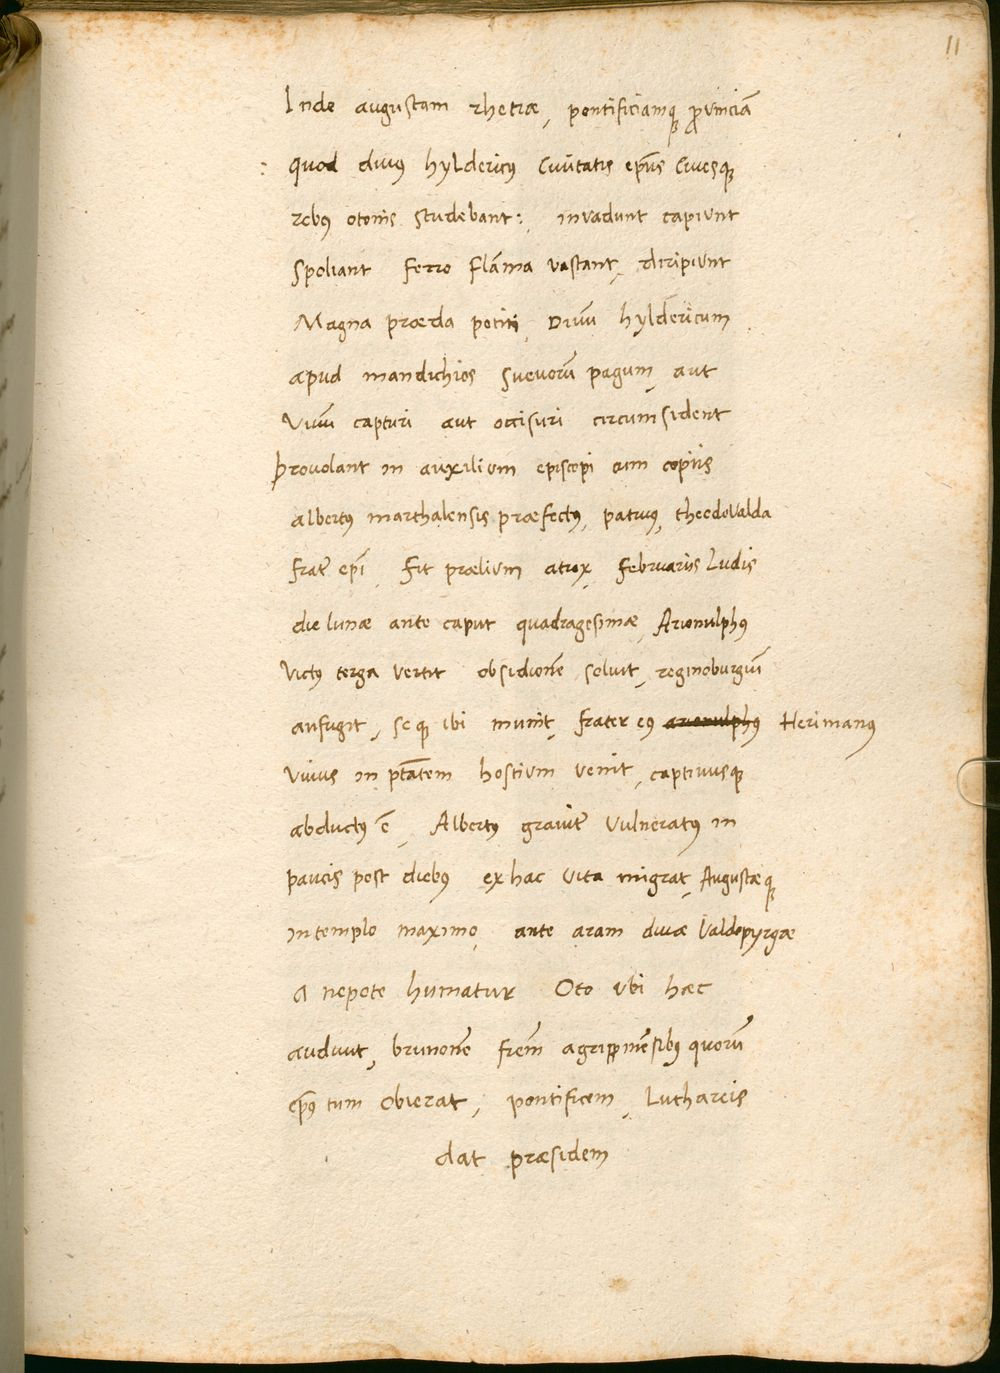 11
Inde augustam rhetiæ, pontificiamqꝫ ꝓvinciā
: quod divꝰ hyldericꝰ Civitatis ep̄us Civesqꝫ
rebꝰ otonis studebant:, invadunt capiunt
spoliant ferro flāma vastant, diripiunt
Magna præda potiti, Divū hyldericum
apud mandichios Suevorū pagum, aut
Vivū capturi aut occisuri circumsident
Provolant in auxilium episcopi cum copiis
albertꝰ marthalensis præfectꝰ, patruꝰ, theodovalda
frat̄ ep̄i, Fit prælium atrox, februariis Ludis
die lunæ ante caput quadragesimæ, Arionulphꝰ
Victꝰ terga vertit obsidionē solvit, reginoburgiū
aufugit, seqꝫ ibi munit, frater eꝰ arionulphꝰ Herimanꝰ
Vivus in ptātem hostium venit, captivusqꝫ
abductꝰ ē, Albertꝰ gravit̄ Vulneratꝰ in
paucis post diebꝰ ex hac Vita migrat, Augustæqꝫ
in templo maximo, ante aram divæ Valdopyrgæ
A nepote humatur Oto ubi hæc
audivit, brunonē frēm agrippinēsibꝰ quorū
ep̄ꝰ tum obierat, pontificem, Luthareis
dat præsidem